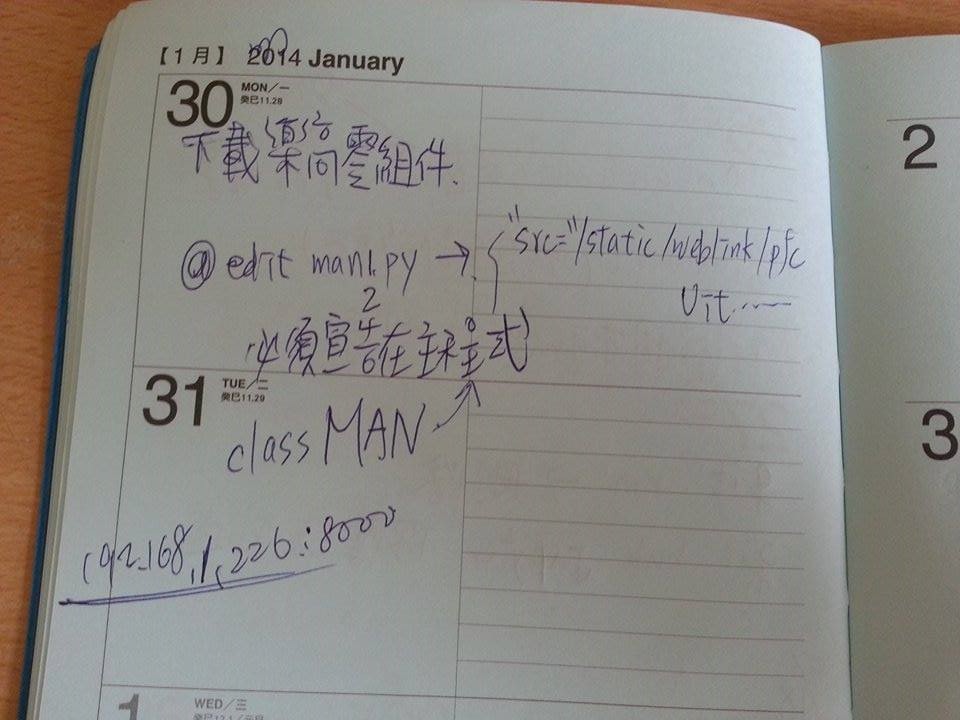 【1月】 2014 January
30 MON／一
癸巳11.28
下載樂高零組件.
@ edit man1.py → "src="/static/weblink/pfc
2
Uit......
必須宣告在主程式
31 TUE／二
癸巳11.29
class MAN
192.168.1.226:8000
1 WED／三
癸巳12.1／元旦
2
3